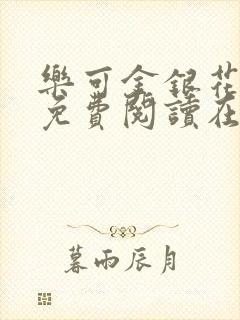 樂可金銀花
免費閱讀在
暮雨辰月